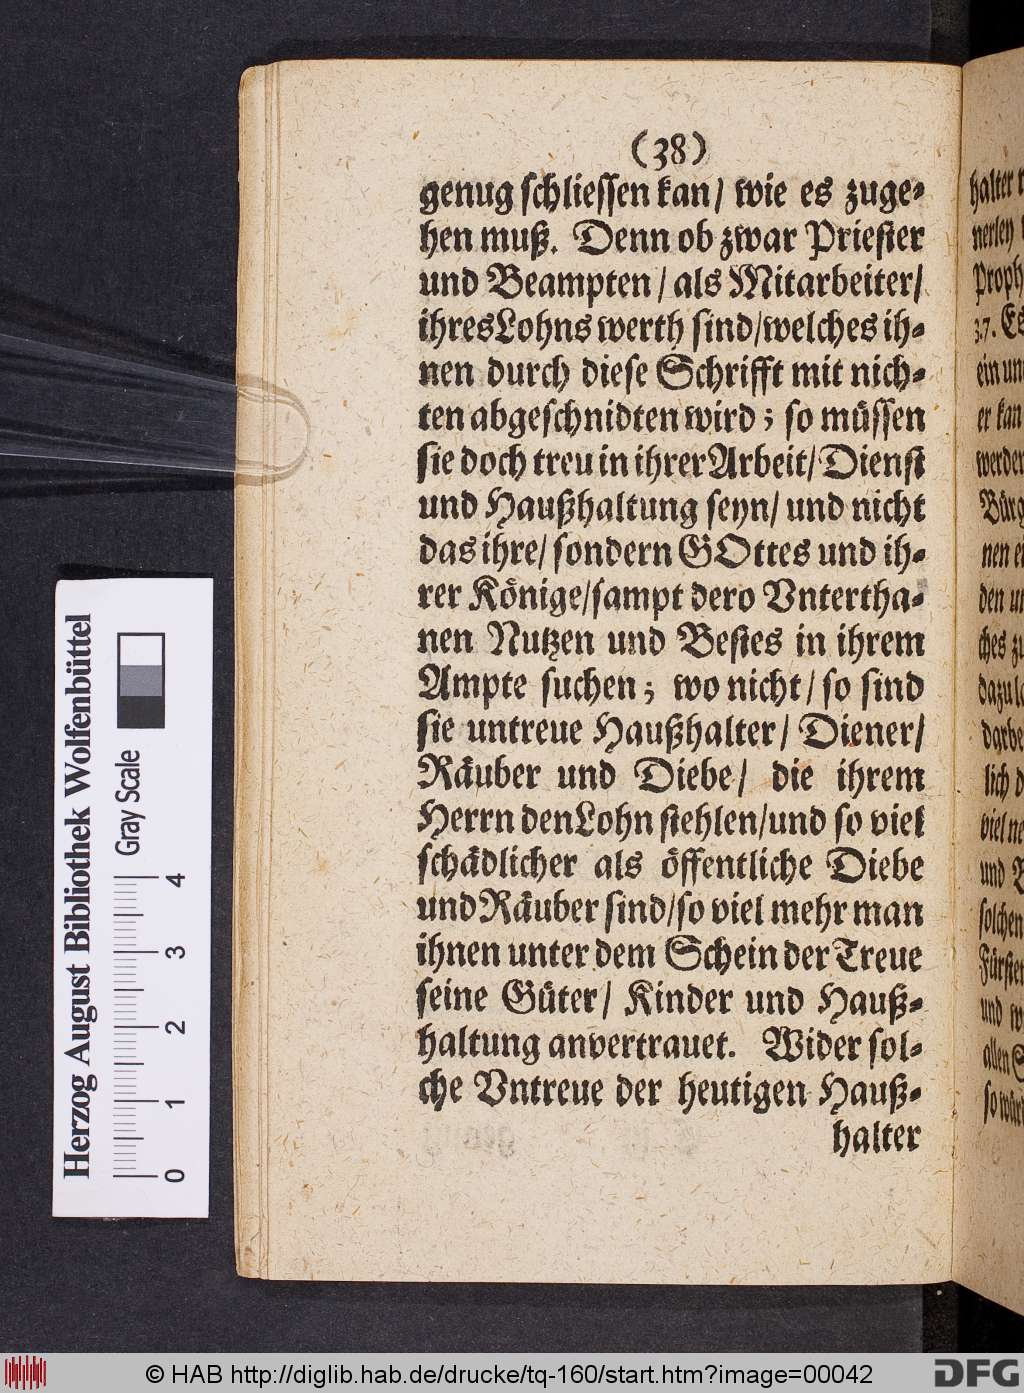 (38)
genug schliessen kan/ wie es zuge-
hen muß. Denn ob zwar Priester
und Beampten/ als Mitarbeiter/
ihres Lohns werth sind/welches ih-
nen durch diese Schrifft mit nich-
ten abgeschnidten wird; so müssen
sie doch treu in ihrer Arbeit/ Dienst
und Haußhaltung seyn/ und nicht
das ihre/ sondern GOttes und ih-
rer Könige/sampt dero Vntertha-
nen Nutzen und Bestes in ihrem
Ampte suchen; wo nicht/ so sind
sie untreue Haußhalter/ Diener/
Räuber und Diebe/ die ihrem
Herrn den Lohn stehlen/und so viel
schädlicher als öffentliche Diebe
und Räuber sind/so viel mehr man
ihnen unter dem Schein der Treue
seine Güter/ Kinder und Hauß-
haltung anvertrauet. Wider sol-
che Vntreue der heutigen Hauß-
halter
halter
nerley
Proph
37. Es
ein un
er kan
werden
Bürg
nen ei
den un
ches zu
dazu
darbe
lich d
viel ne
und
solchen
Fürsten
und w
allen
so würd
Herzog August Bibliothek Wolfenbüttel
Gray Scale
0 1 2 3 4
© HAB http://diglib.hab.de/drucke/tq-160/start.htm?image=00042
DFG